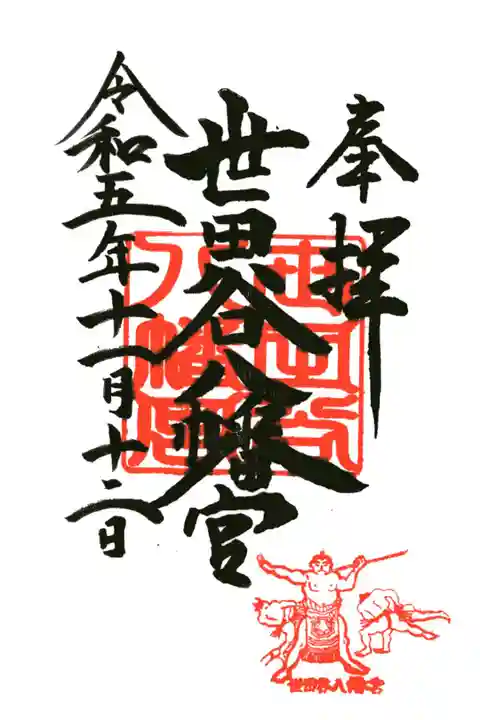 奉拝
世田谷八幡宮
世田谷八幡宮
令和五年十一月十二日
世田谷八幡宮